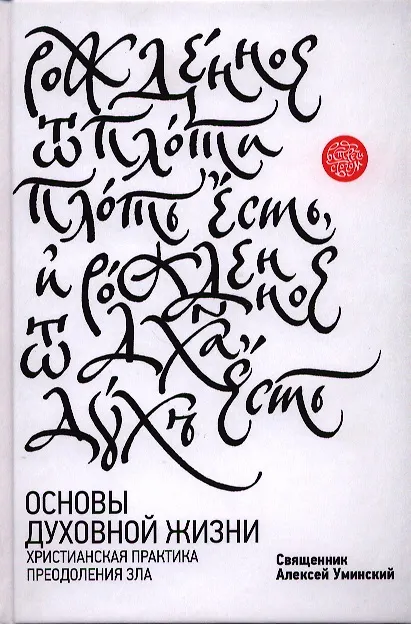 рожде́нное
ѿ пло́ти
пло́ть є҆́сть,
и҆ рожде́нное
ѿ дх҃а,
ду́хъ є҆́сть
встречи
с Богом
ОСНОВЫ
ДУХОВНОЙ ЖИЗНИ
ХРИСТИАНСКАЯ ПРАКТИКА
ПРЕОДОЛЕНИЯ ЗЛА
Священник
Алексей Уминский